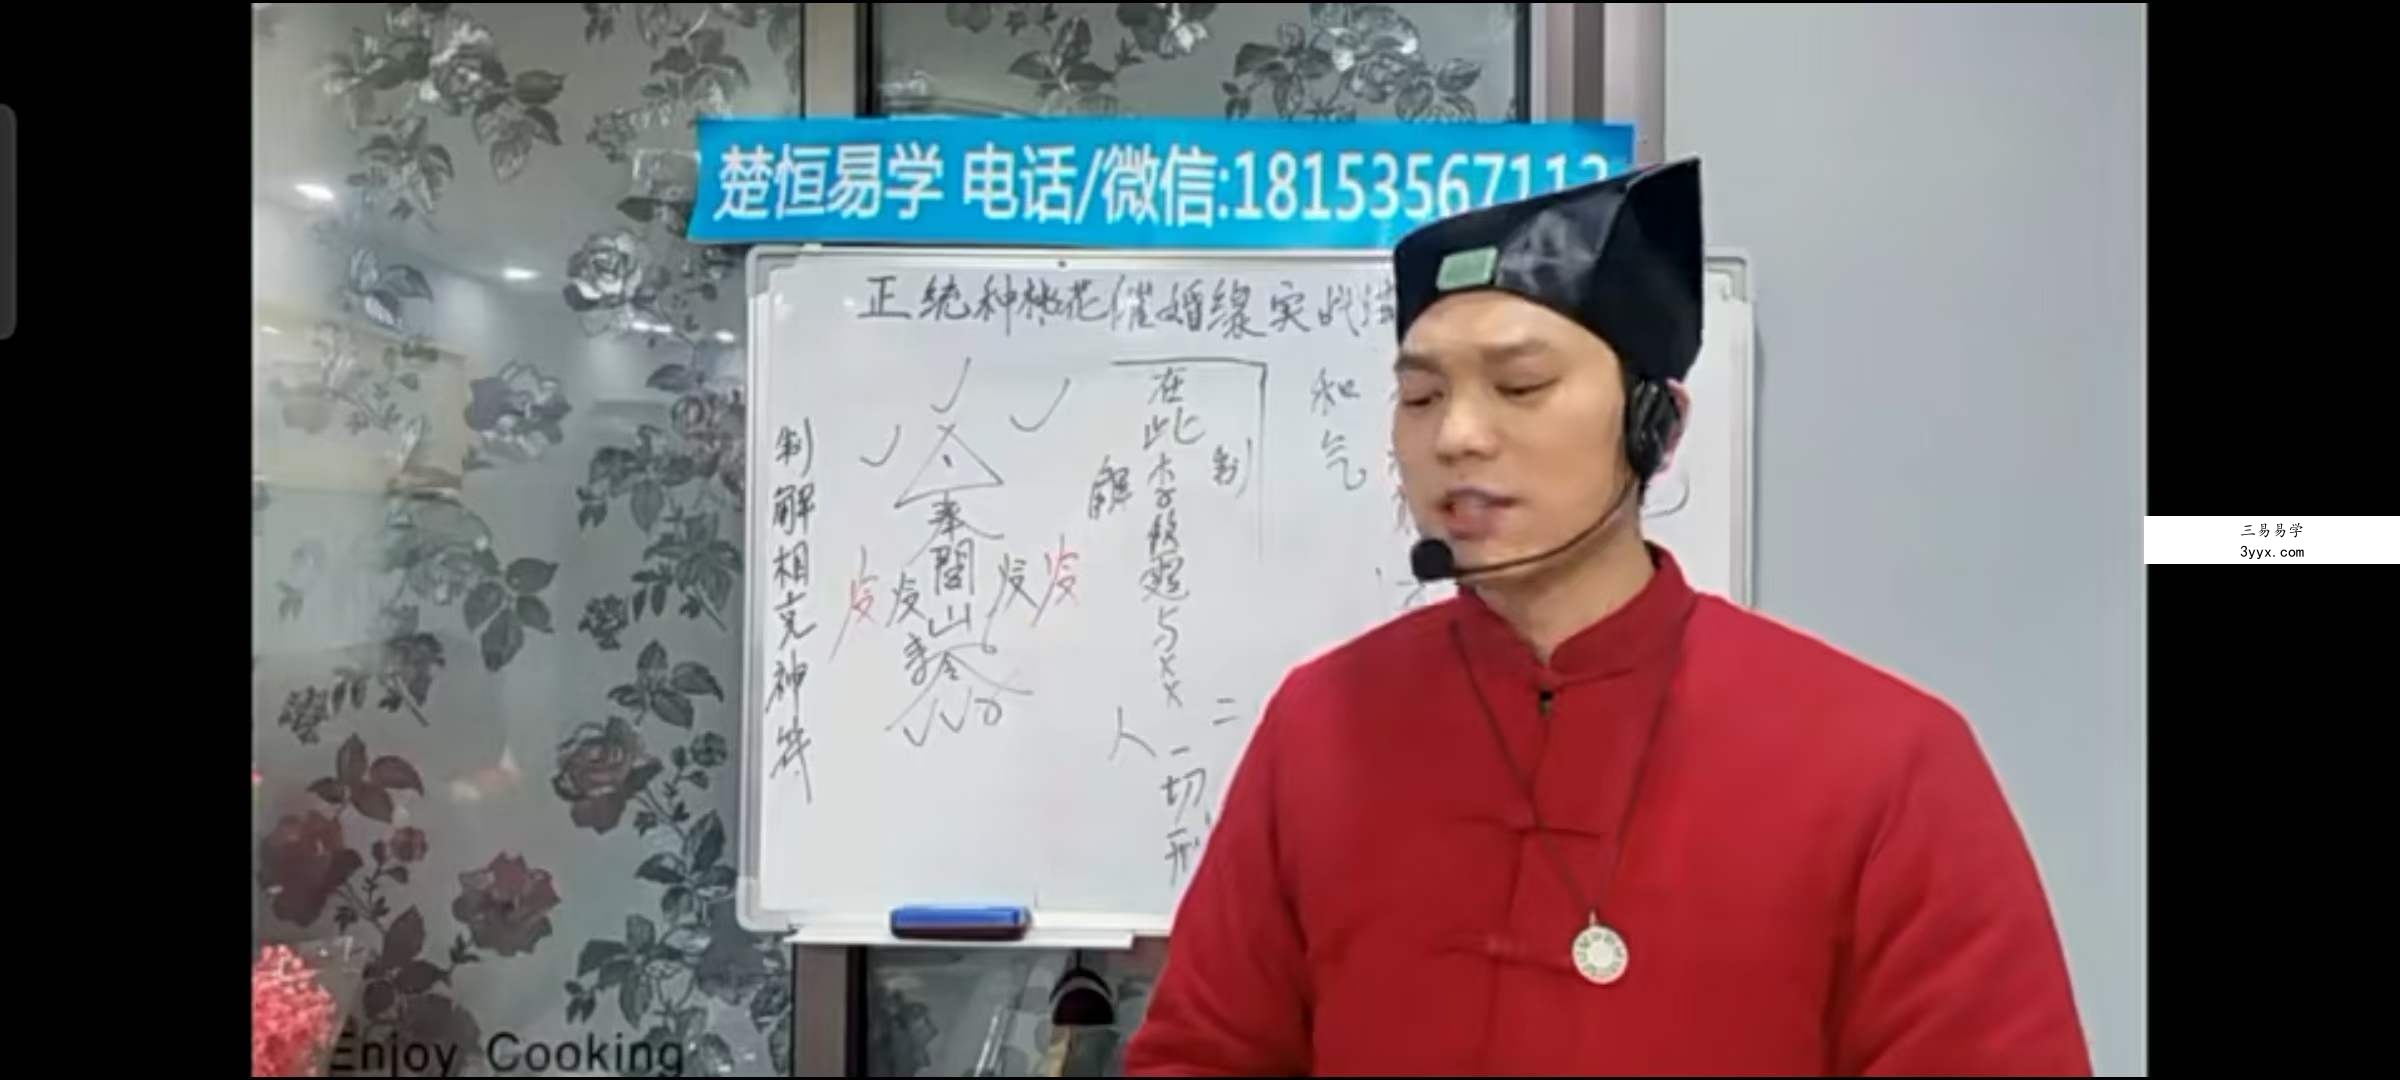 楚恒易学 电话/微信:18153567112
正统种桃花催婚缘实战
制解相克神符
奉
閭山
令
发 发 发 发
在此
解 制
与××
二
人
一切形
和气
三易易学
3yyx.com
Enjoy Cooking